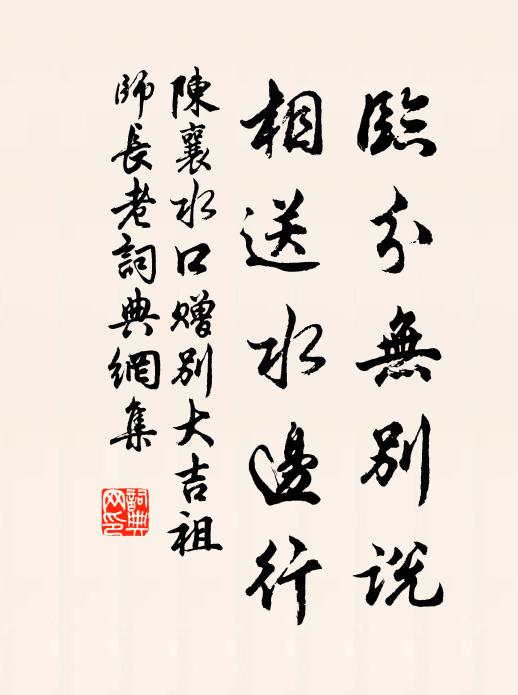 臨分無別說
相送水邊行
陳襄水口贈別大吉祖
師長老詞典網集
詞典网印